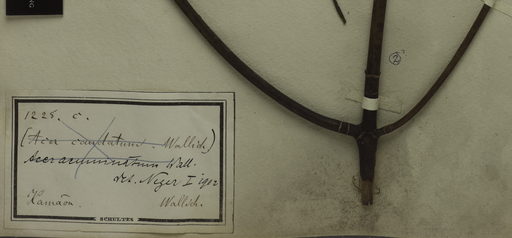 1225. c.
(Acer caudatum. Wallich.)
Acer acuminatum Wall.
det. Neger I 1912
Kamaon. Wallich.
SCHULTES
②